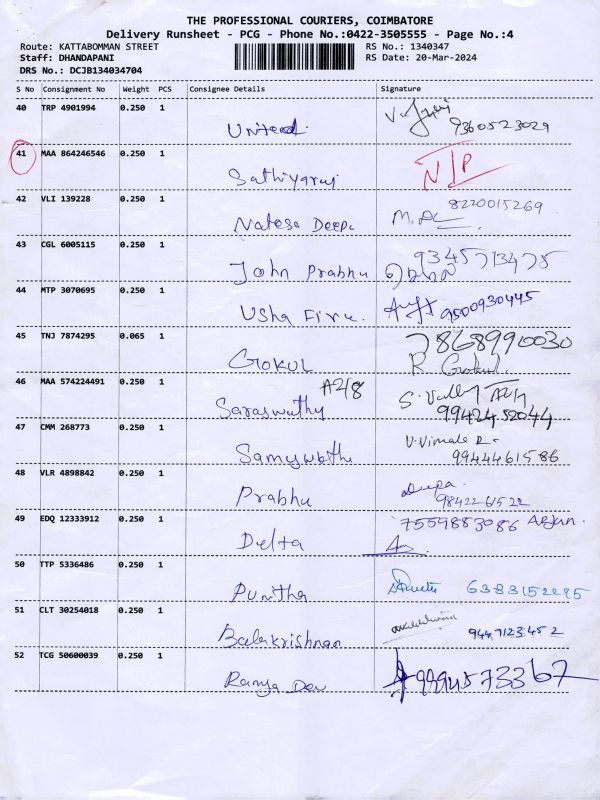 THE PROFESSIONAL COURIERS, COIMBATORE
Delivery Runsheet - PCG - Phone No.:0422-3505555 - Page No.:4
Route: KATTABOMMAN STREET RS No.: 1340347
Staff: DHANDAPANI RS Date: 20-Mar-2024
DRS No.: DCJB134034704
S No Consignment No Weight PCS Consignee Details Signature
40 TRP 4901994 0.250 1
United. 9360523029
41 MAA 864246546 0.250 1
Sathiyaraj N/P
42 VLI 139228 0.250 1 8220015269
Natesa Deepa
43 CGL 6005115 0.250 1 9345713475
John Prabhu
44 MTP 3070695 0.250 1
Usha Fire. 9500930445
45 TNJ 7874295 0.065 1 7868990030
GOKUL R. Gokul.
46 MAA 574224491 0.250 1 A2/8 S. Valley
Saraswathy 9942452044
47 CMM 268773 0.250 1 V. Vimala R.
9944461586
48 VLR 4898842 0.250 1
Prabhu 9842261522
49 EDQ 12333912 0.250 1 7559883086 Arjun.
Delta
50 TTP 5336486 0.250 1
Punitha 6383152295
51 CLT 30254018 0.250 1
Balakrishnan 9447123452
52 TCG 50600039 0.250 1
Ramya Dev 9994573367